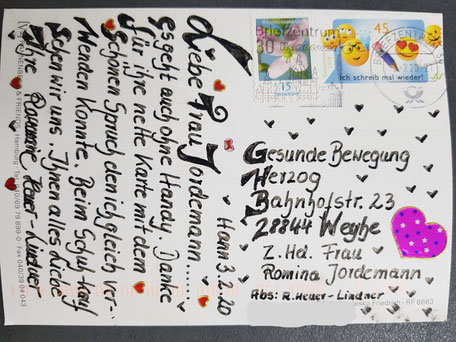 Hann 3.2.20
Liebe Frau Jordemann.....
es geht auch ohne Handy. Danke
für ihre nette Karte mit dem
schönen Spruch den ich gleich ver-
wenden konnte. Beim Schuhkauf
sehen wir uns. Ihnen alles Liebe
Ihre Rosemarie Heuer-Lindner
Briefzentrum
30
15
45
Ich schreib mal wieder!
BRIEFZENTRUM
Gesunde Bewegung
Herzog
Bahnhofstr. 23
28844 Weyhe
Z. Hd. Frau
Romina Jordemann
Abs: R. Heuer-Lindner